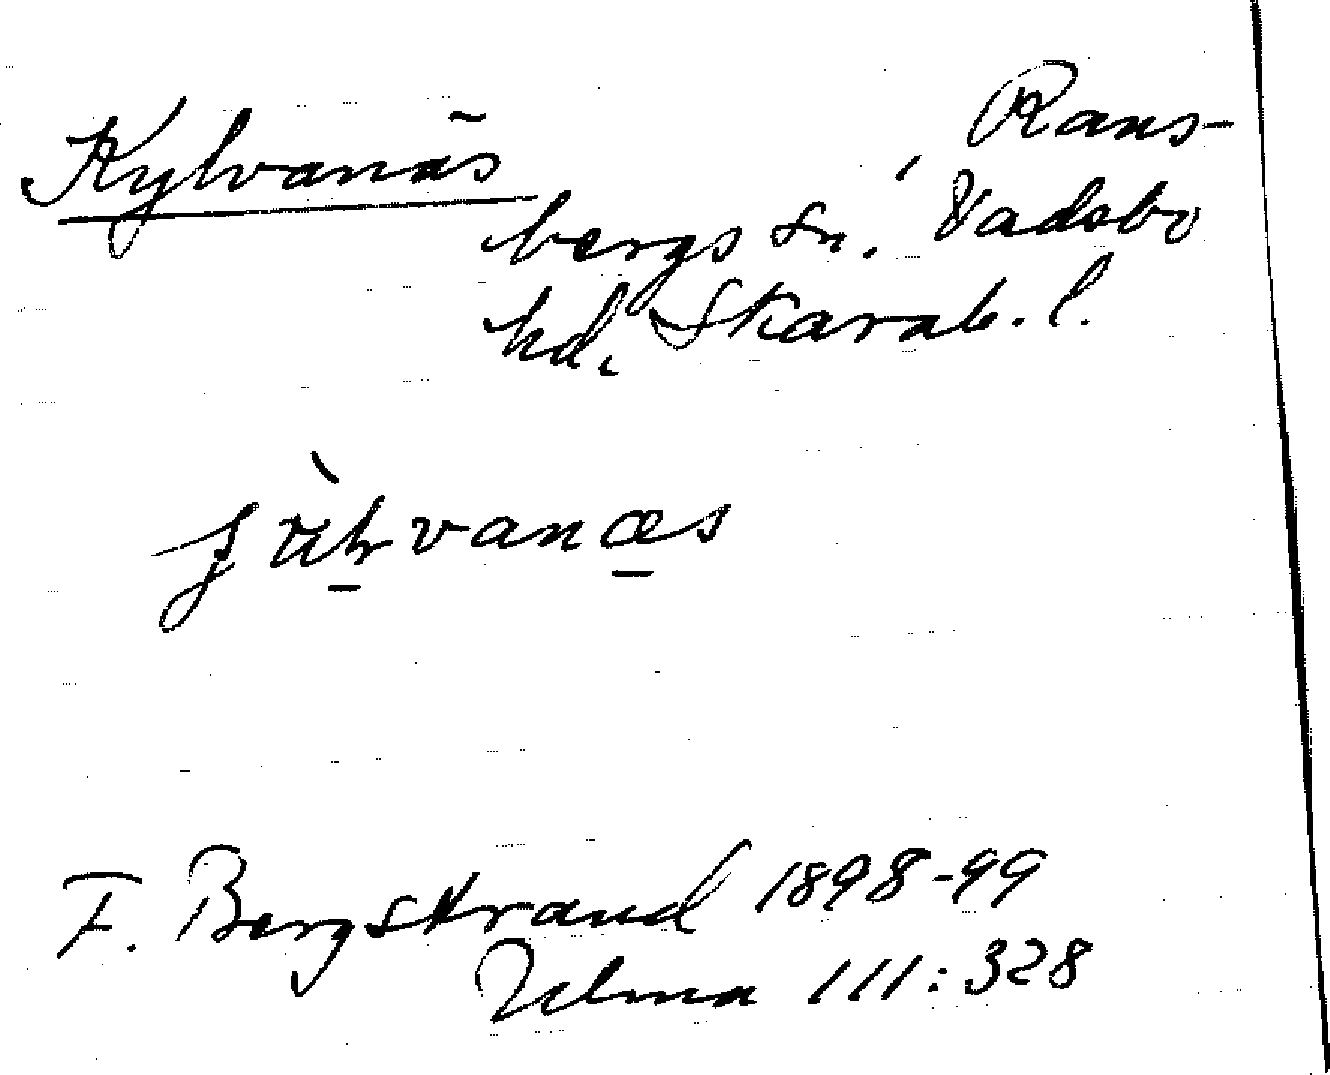 Kylvanäs
Rans-
bergs sn. Vadsbo
hd. Skarab. l.
F. Bergstrand 1898-99
Ulma 111:328